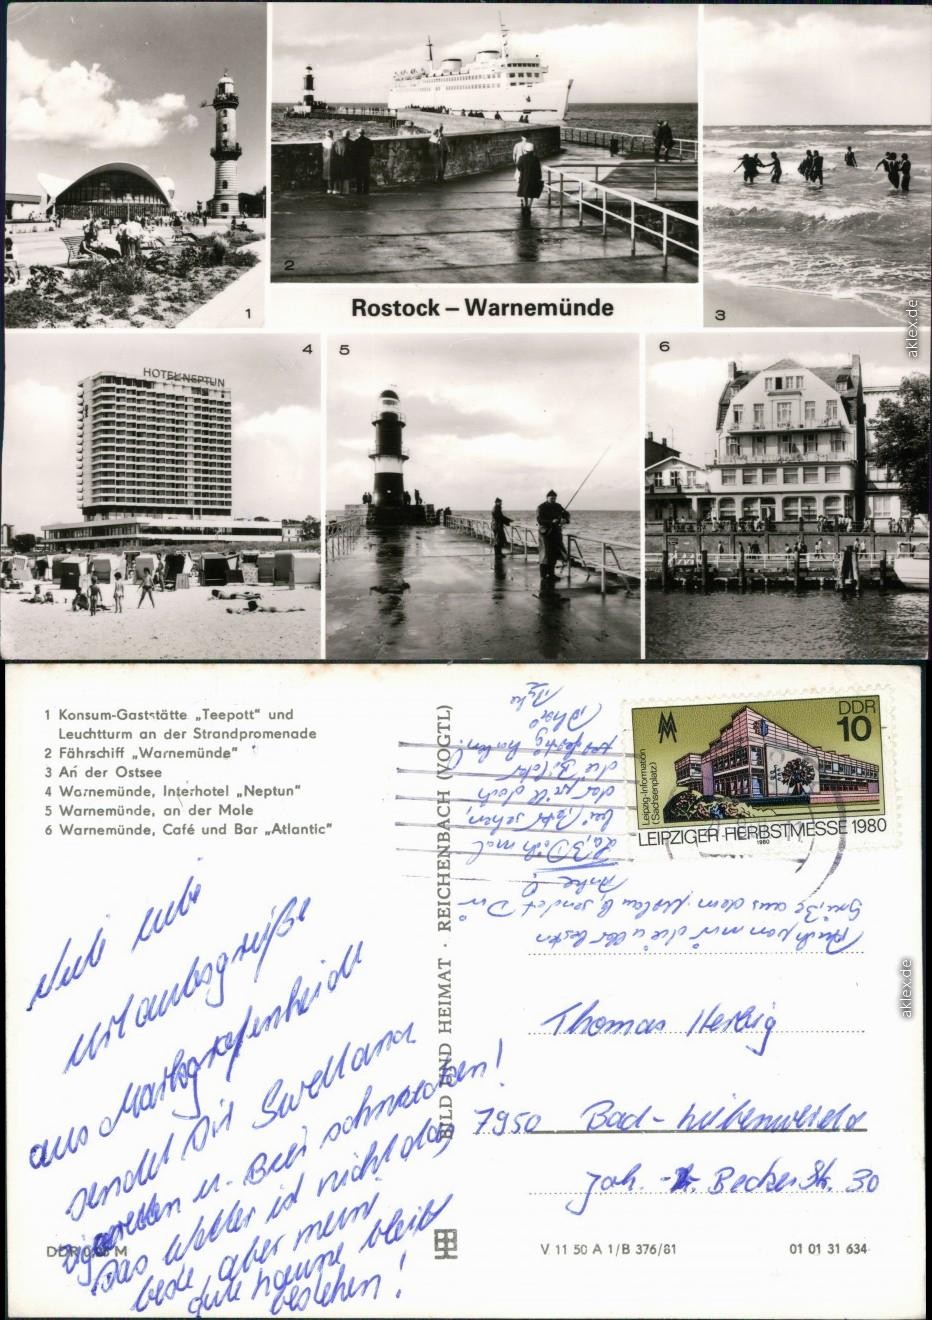 1
2
Rostock – Warnemünde
3
4
HOTEL NEPTUN
5
6
aklex.de
1 Konsum-Gaststätte „Teepott" und
Leuchtturm an der Strandpromenade
2 Fährschiff „Warnemünde"
3 An der Ostsee
4 Warnemünde, Interhotel „Neptun"
5 Warnemünde, an der Mole
6 Warnemünde, Café und Bar „Atlantic"
Viele liebe
Urlaubsgrüße
aus Markgrafenheide
sendet Dir Swetlana
Zigaretten u. Bier schmecken!
Das Wetter ist nicht das
beste, aber meine
gute Laune bleibt
bestehen!
DDR M
BILD UND HEIMAT · REICHENBACH (VOGTL)
DDR
10
Leipzig-Information
(Sachsenplatz)
LEIPZIGER HERBSTMESSE 1980
1980
Auch von mir die allerbesten
Grüße aus dem Urlaub sendet Dir
Anke
Thomas Herbig
7950 Bad-Liebenwerda
Joh. -R. Becher Str. 30
V 11 50 A 1/B 376/81
01 01 31 634
aklex.de